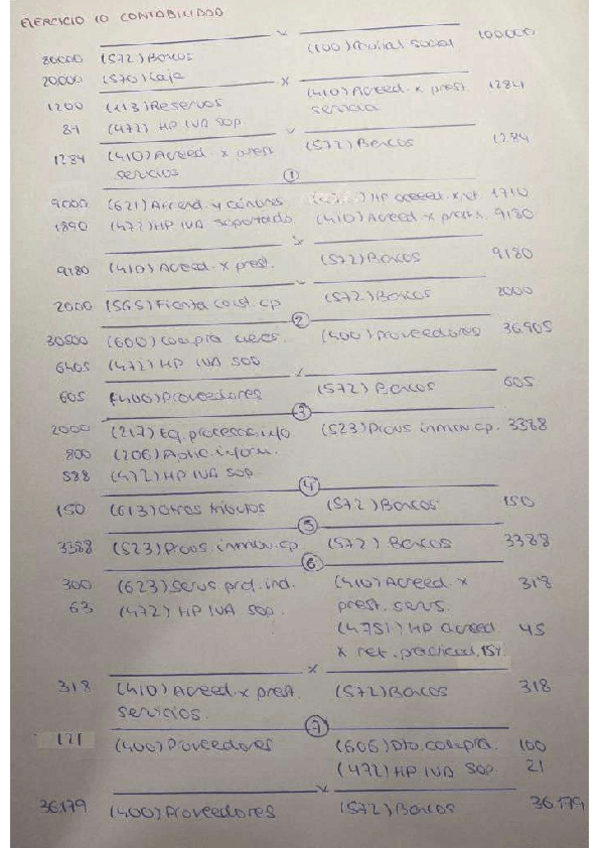 EJERCICIO 10 CONTABILIDAD
x
80000 (572) Bancos (100) Capital social 100000
20000 (570) Caja
x
1200 (113) Reservas (410) Acreed. x prest. 1284
84 (472) HP IVA SOP. servicio
x
1284 (410) Acreed. x prest. (572) Bancos 1284
servicios
1
9000 (621) Arrend. y cánones HP acreed. x ret 1710
1890 (472) HP IVA soportado (410) Acreed. x prest. 9180
x
9180 (410) Acreed. x prest. (572) Bancos 9180
2000 (565) Fianza const. cp (572) Bancos 2000
2
30500 (600) Compra merc. (400) Proveedores 36905
6405 (472) HP IVA SOP
x
605 (400) Proveedores (572) Bancos 605
3
2000 (217) Eq. procesos. info (523) Provs inmov. cp. 3388
800 (206) Aplic. inform.
588 (472) HP IVA SOP.
4
150 (613) Otros tributos (572) Bancos 150
5
3388 (523) Provs. inmov. cp (572) Bancos 3388
6
300 (623) Servs prof. ind. (410) Acreed. x 318
63 (472) HP IVA SOP. prest. servs.
(4751) HP acreed 45
x ret. practicad. 15%
x
318 (410) Acreed. x prest. (572) Bancos 318
servicios.
7
121 (400) Proveedores (606) Dto. compra. 100
(472) HP IVA SOP. 21
x
36179 (400) Proveedores (572) Bancos 36179